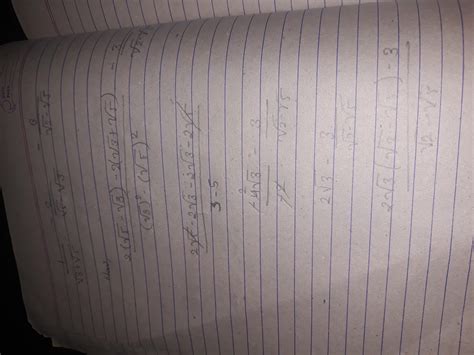 1/(√3+√5) - 2/(√5-√3) - 3/(√2-√5)
2(√5-√3) - 2(√3+√5) / (√3)² - (√5)² - 3/(√2-√5)
2√5-2√3-2√3-2√5 / 3-5
-4√3/-2 - 3/(√2-√5)
2√3 - 3/(√2-√5)
2√3(√2-√5) - 3 / √2-√5